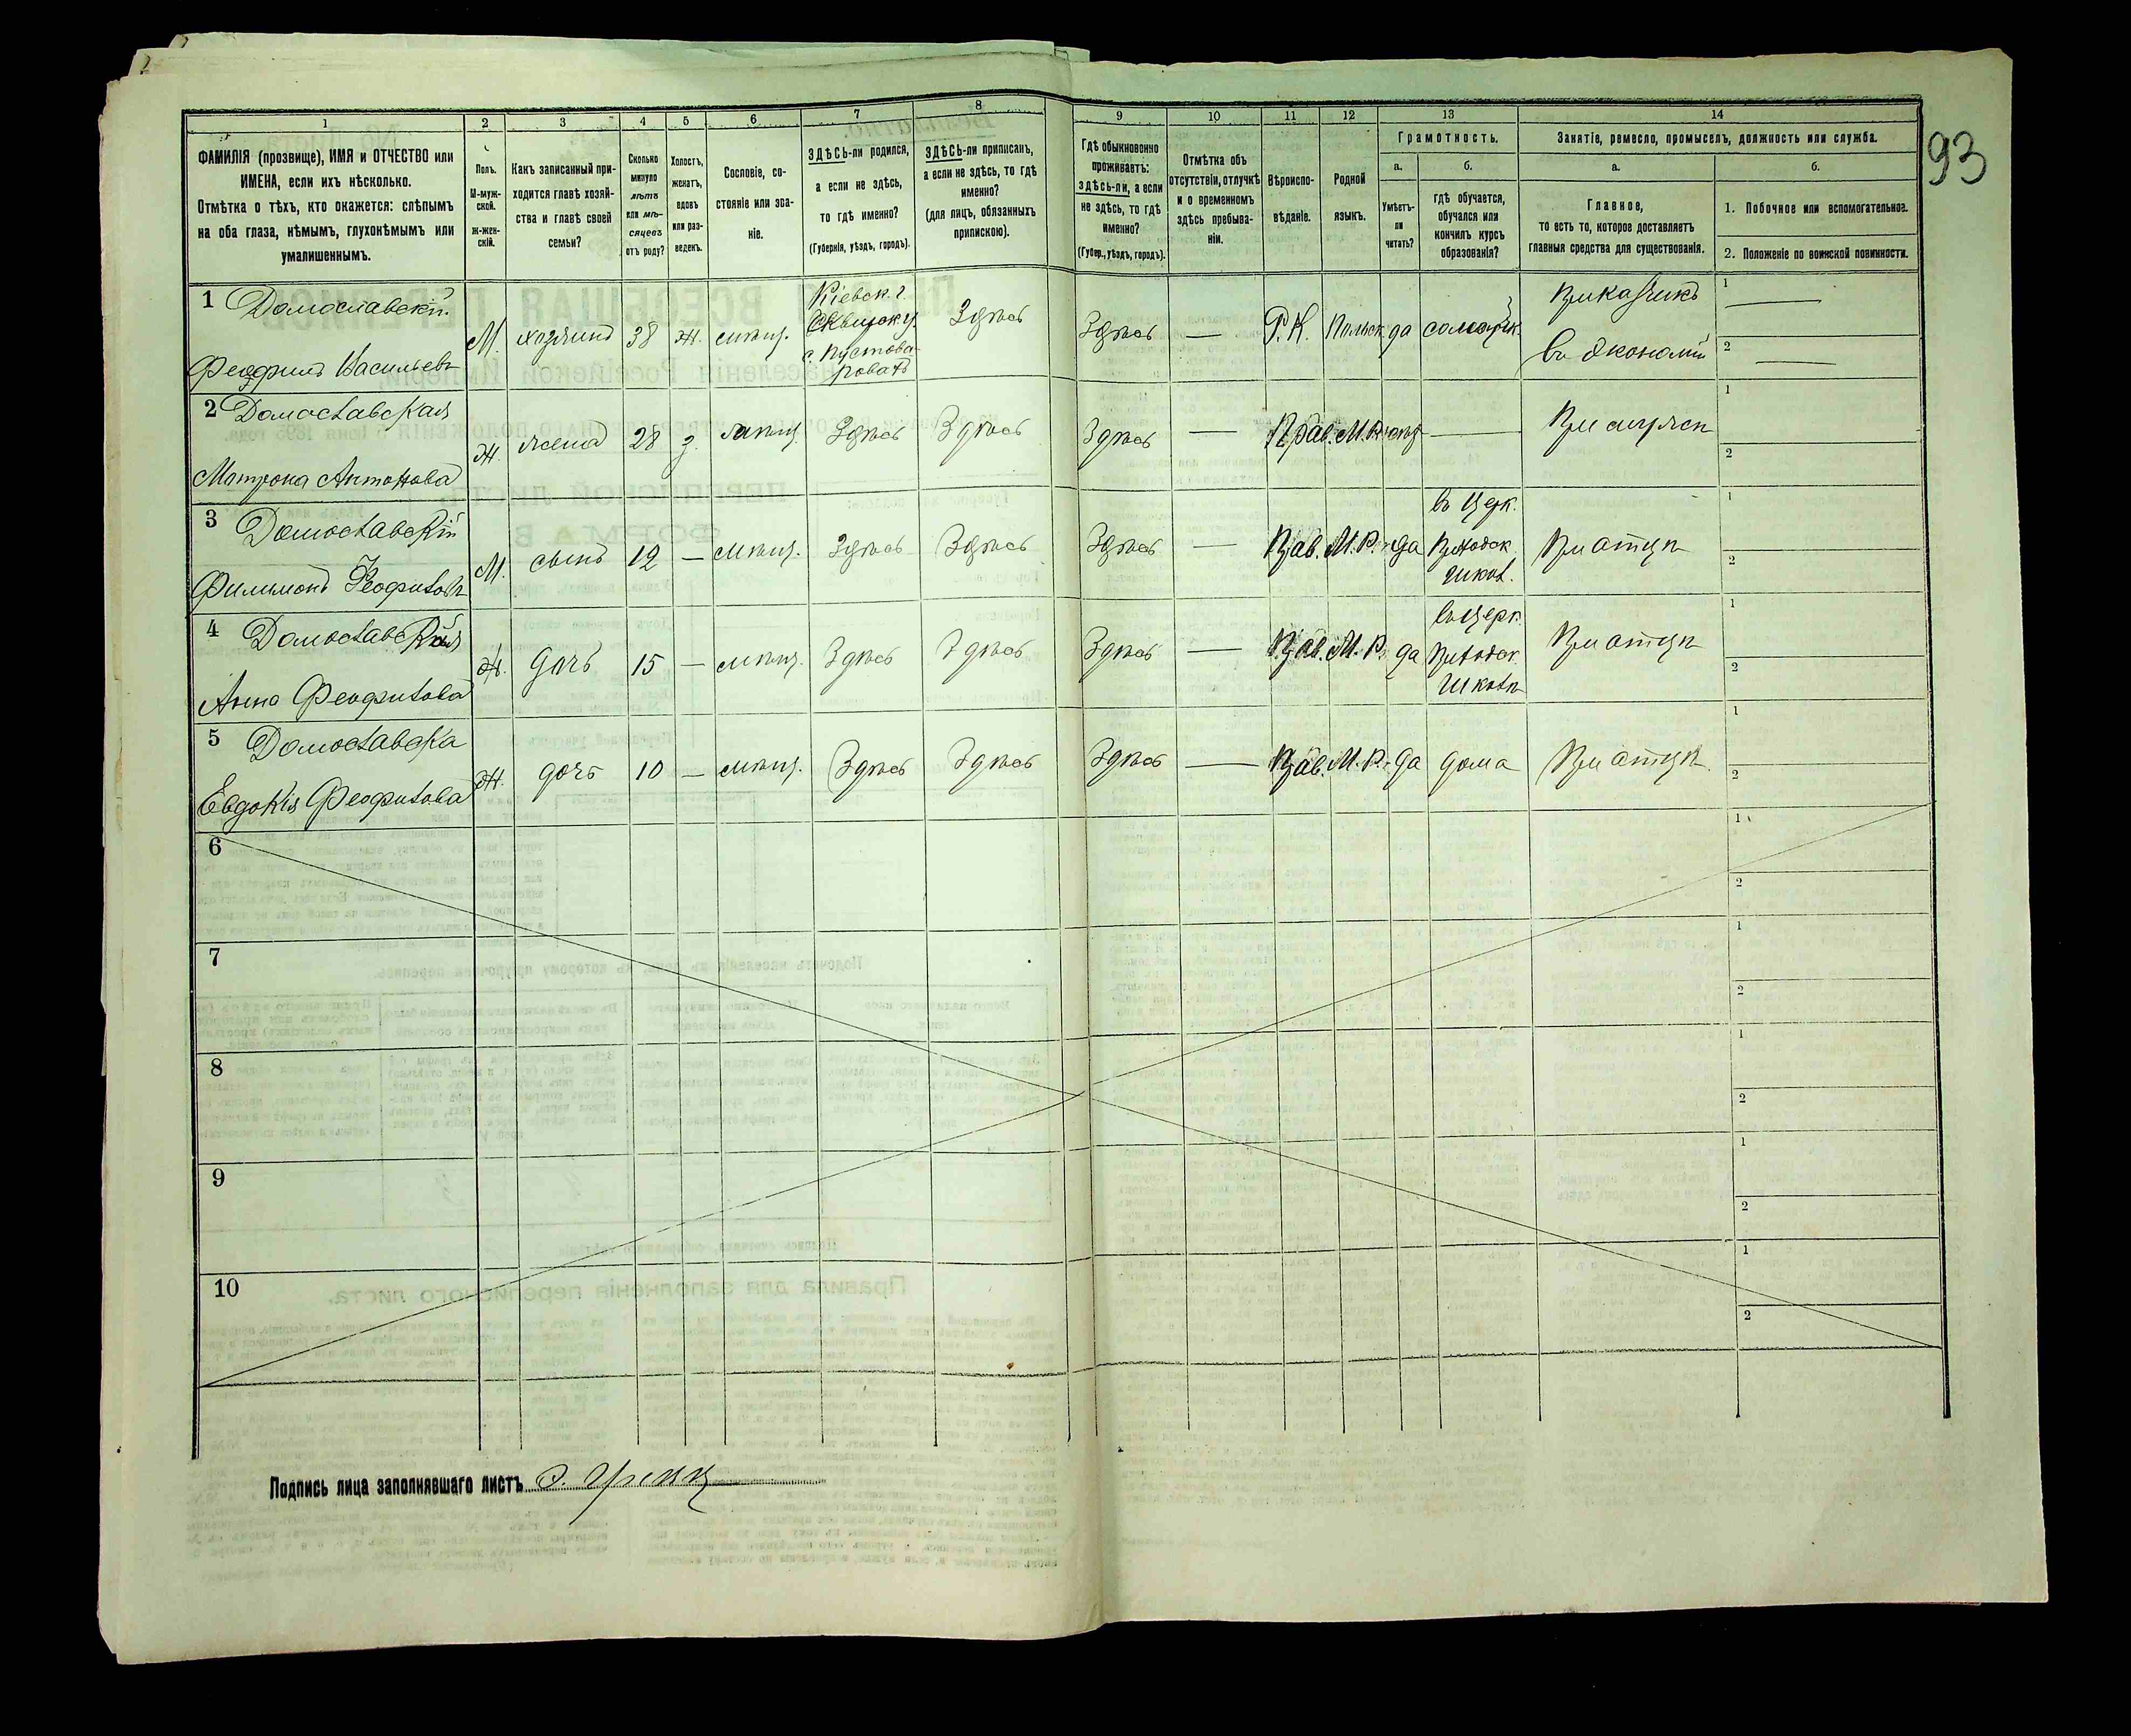 93
1 2 3 4 5 6 7 8 9 10 11 12 13 14
ФАМИЛІЯ (прозвище), ИМЯ и ОТЧЕСТВО или
ИМЕНА, если ихъ нѣсколько.
Отмѣтка о тѣхъ, кто окажется: слѣпымъ
на оба глаза, нѣмымъ, глухонѣмымъ или
умалишеннымъ.
Полъ.
М-муж-
ской.
Ж-жен-
скій.
Какъ записанный при-
ходится главѣ хозяй-
ства и главѣ своей
семьи?
Сколько
минуло
лѣтъ
или мѣ-
сяцевъ
отъ роду?
Холостъ,
женатъ,
вдовъ
или раз-
веденъ.
Сословіе, со-
стояніе или зва-
ніе.
ЗДѢСЬ-ли родился,
а если не здѣсь,
то гдѣ именно?
(Губернія, уѣздъ, городъ).
ЗДѢСЬ-ли приписанъ,
а если не здѣсь, то гдѣ
именно?
(для лицъ, обязанныхъ
припискою).
Гдѣ обыкновенно
проживаетъ:
здѣсь-ли, а если
не здѣсь, то гдѣ
именно?
(Губер., уѣздъ, городъ).
Отмѣтка объ
отсутствіи, отлучкѣ
и о временномъ
здѣсь пребыва-
ніи.
Вѣроиспо-
вѣданіе.
Родной
языкъ.
Грамотность.
а.
Умѣетъ-
ли
читать?
б.
гдѣ обучается,
обучался или
кончилъ курсъ
образованія?
Занятіе, ремесло, промыселъ, должность или служба.
а.
Главное,
то есть то, которое доставляетъ
главныя средства для существованія.
б.
1. Побочное или вспомогательное.
2. Положеніе по воинской повинности.
1 Домославскій
Феофилъ Васильевъ
М. хозяинъ 38 Ж. мѣщ.
Кіевск. г.
Сквирск. у.
с. Пустова-
ровать
Здѣсь Здѣсь — Р. К. Польск да
Прикащикъ
въ Экономіи
1 —
2 —
2 Домославская
Матрона Антонова
Ж. жена 28 з. мѣщ. Здѣсь Здѣсь Здѣсь — Прав. М. Р. — При мужѣ
1
2
3 Домославскій
Филимонъ Феофиловъ
М. сынъ 12 — мѣщ. Здѣсь Здѣсь Здѣсь — Прав. М. Р. да
въ Церк.
Приходск.
Школ.
При отцѣ
1
2
4 Домославская
Анна Феофилова
Ж. дочь 15 — мѣщ. Здѣсь Здѣсь Здѣсь — Прав. М. Р. да
въ Церк.
Приходск.
Школѣ
При отцѣ
1
2
5 Домославска
Евдокія Феофилова
Ж. дочь 10 — мѣщ. Здѣсь Здѣсь Здѣсь — Прав. М. Р. да дома При отцѣ
1
2
6
1
2
7
1
2
8
1
2
9
1
2
10
1
2
Подпись лица заполнявшаго листъ